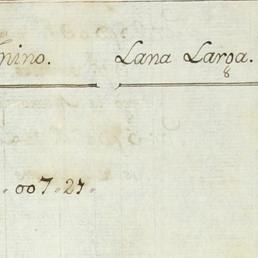 nino. Lana Larga.
. 007.27.